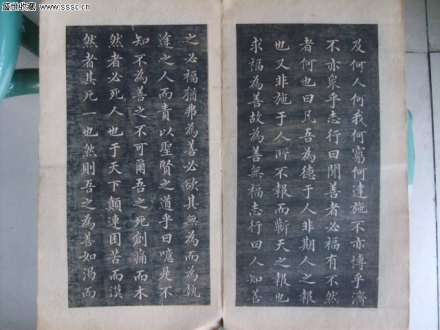 盛世收藏 http://www.sssc.cn
及何人何我何窮何達施不亦博乎濟
不亦衆乎志行曰聞善者必福有不然
者何也曰凡吾為德于人非期人之報
也又非施于人所不報而蘄天之報也
求福為善故為善無福志行曰人知善
之必福猶弗為善必欲其無為而為執
途之人而責以聖賢之道乎曰噫是不
知不為善之不可爾吾之死創痛而木
然者必死人也于天下顛連困苦而漠
然者其死一也然則吾之為善如渴而